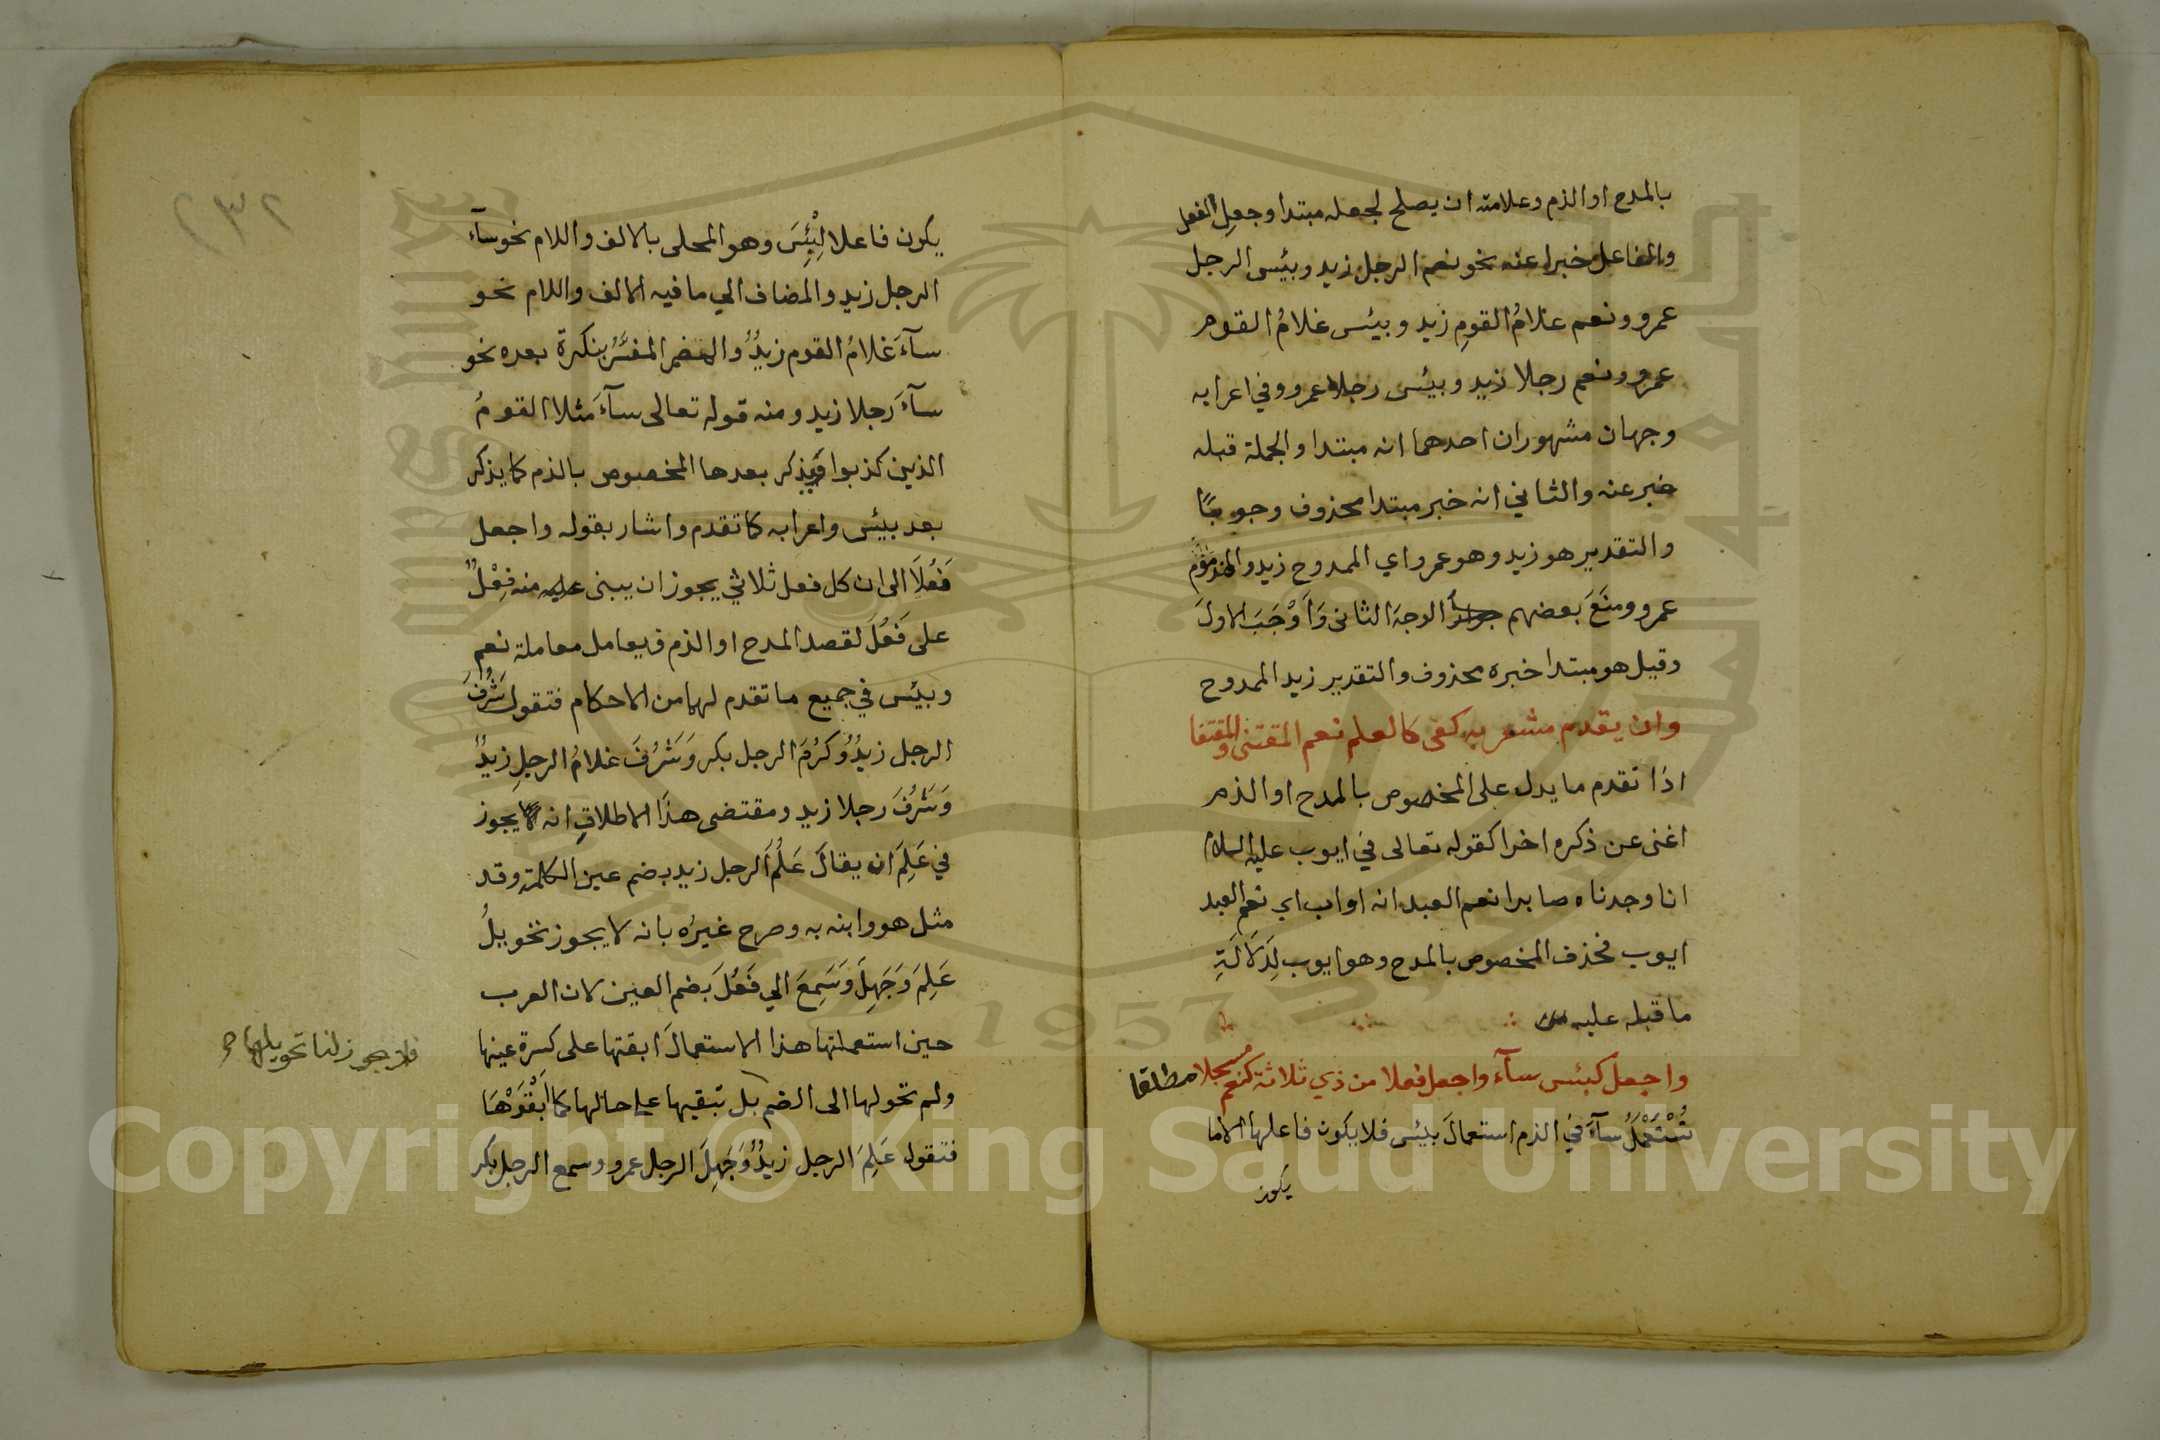 بالمدح او الذم وعلامته ان يصلح لجعله مبتدا وجعل الفعل
والفاعل خبرا عنه نحو نعم الرجل زيد وبئس الرجل
عمرو ونعم غلامُ القومِ زيد وبيئس غلامُ القوم
عمرو ونعم رجلا زيد وبيئس رجلا عمرو وفي اعرابه
وجهان مشهوران احدهما انه مبتدا والجملة قبله
خبر عنه والثاني انه خبر مبتدا محذوف وجوبًا
والتقدير هو زيد وهو عمرو اي الممدوح زيد والمذموم
عمرو ومنَعَ بعضهم الوجهَ الثانى وَاَوْجَبَ الاولَ
وقيل هو مبتدا خبره محذوف والتقدير زيد الممدوح
وان يقدم مشعر به كفى كالعلم نعم المقتنى والمقتفا
اذا تقدم ما يدل على المخصوص بالمدح او الذم
اغنى عن ذكره اخرا كقوله تعالى في ايوب عليه السلام
انا وجدناه صابرا نعم العبد انه اواب اي نعم العبد
ايوب فحذف المخصوص بالمدح وهو ايوب لِدَلَالَةِ
ما قبله عليه
واجعل كبئس سآء واجعل فعلا من ذي ثلاثة كنعم مسجلا مطلقا
تُسْتَعْمَلُ سآءَ في الذم استعمالَ بيئس فلا يكون فاعلها الا ما
يكون
٢٣٢
يكون فاعلا لِبْئِسَ وهو المحلى بالالف واللام نحو سآء
الرجل زيد والمضاف الي ما فيه الالف واللام نحو
سآءَ غلامُ القوم زيدٌ والمضمر المفسَّرُ بنكرة بعده نحو
سآءَ رجلا زيد ومنه قوله تعالى سآءَ مثلا القومُ
الذين كذبوا ويذكر بعدها المخصوص بالذم كما يذكر
بعد بيئس واعرابه كما تقدم واشار بقوله واجعل
فَعُلَا الى ان كل فعل ثلاثي يجوز ان يبنى منه فِعْلٌ
على فَعُلَ لقصد المدح او الذم فيعامل معاملة نعم
وبيئس في جميع ما تقدم لهما من الاحكام فتقول شَرُفَ
الرجل زيدٌ وكَرُمَ الرجل بكر وَشَرُفَ غلامُ الرجلِ زيدٌ
وَشَرُفَ رجلا زيد ومقتضى هذا الاطلاقِ انه يجوز
في عَلِمَ ان يقالَ عَلُمَ الرجل زيد بضم عين الكلمة وقد
مثل هو وابنه به وصرح غيرُه بانه لا يجوز تحويلُ
عَلِمَ وَجَهِلَ وَسَمِعَ الي فَعُلَ بضم العين لان العرب
حين استعملتها هذا الاستعمالَ ابقتها على كسرة عينها
ولم تحولها الى الضم بل تبقيها على حالها كما اَبْقَوْهَا
فتقول عَلِمَ الرجل زيدٌ وَجَهِلَ الرجل عمرو وسمع الرجل بكر
فلا يجوز لنا تحويلها
Copyright © King Saud University
1957